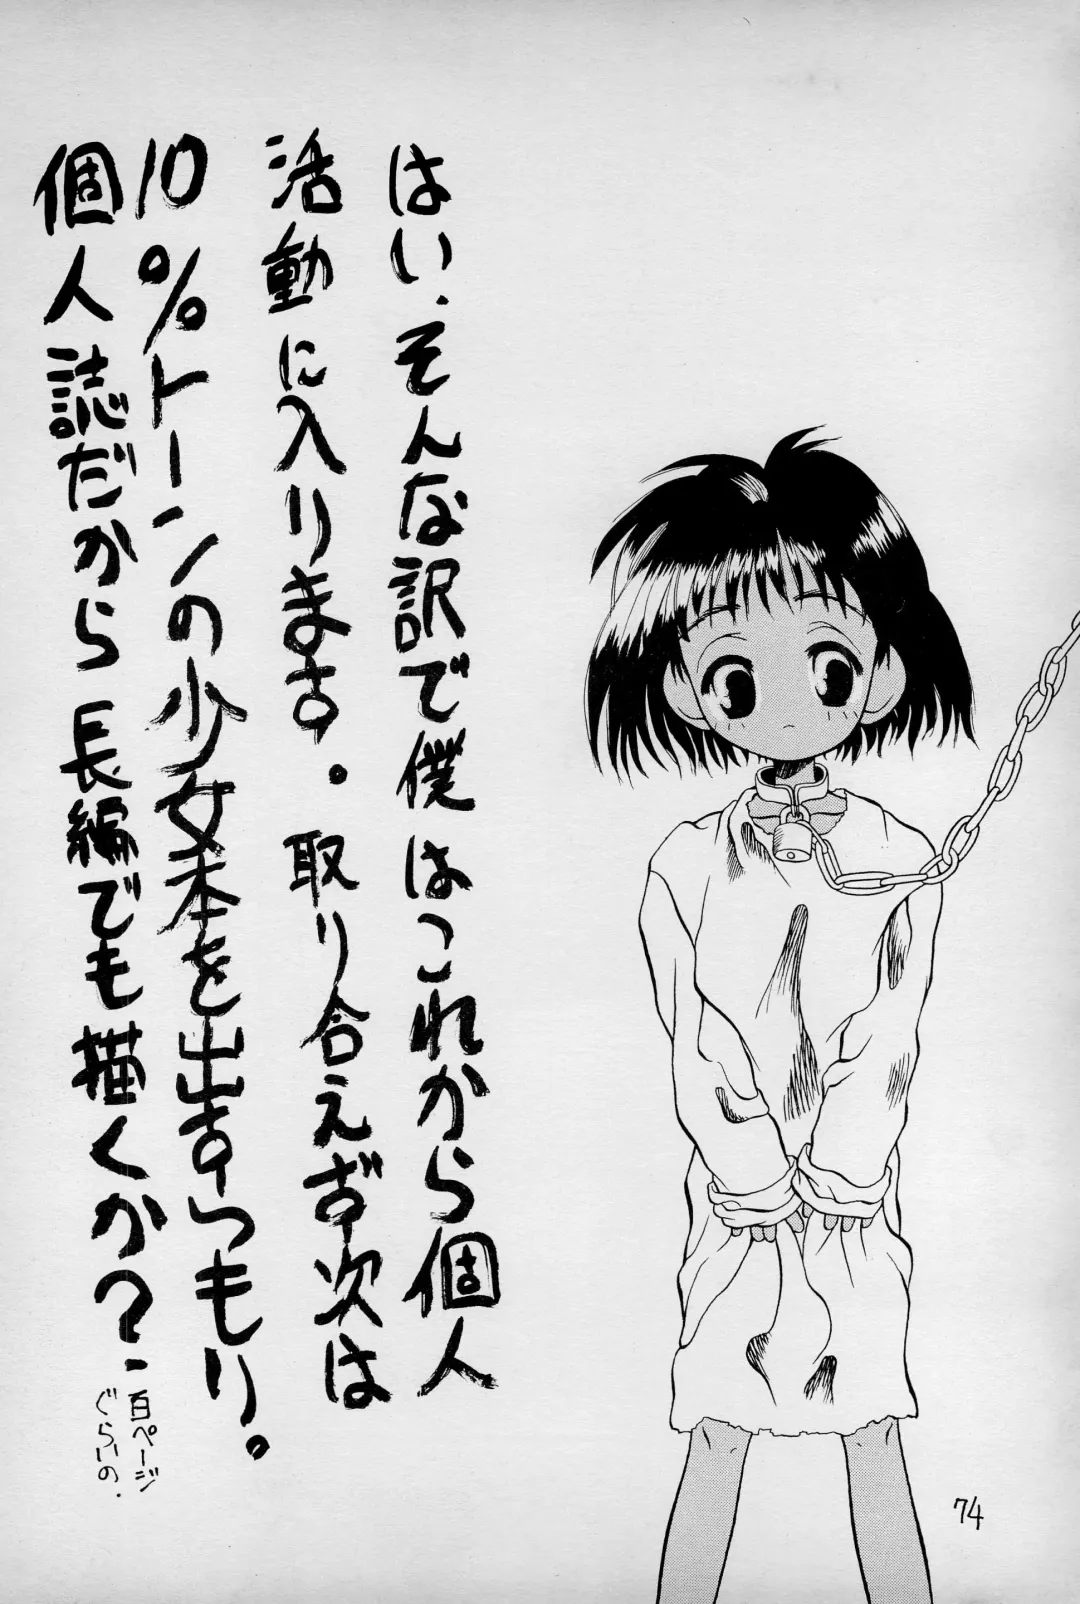 はい、そんな訳で僕はこれから個人
活動に入ります。取り合えず次は
10%トーンの少女本を出すつもり。
個人誌だから長編でも描くか?
百ページ
ぐらいの.
74